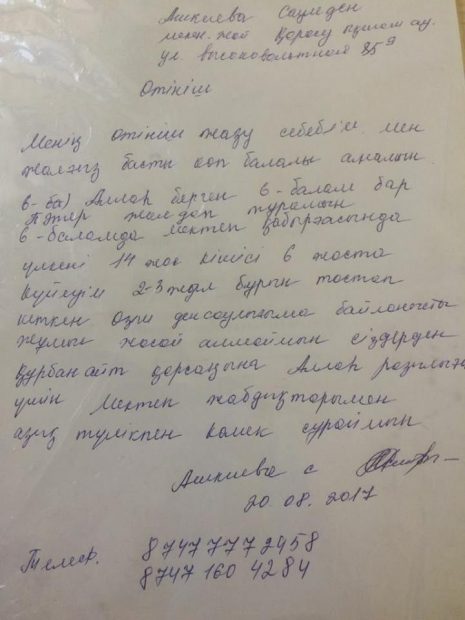 Ашкиева Сәуледен
мекен-жай Қарасу ау.
ул. высоковольтная 85
Өтініш
Менің өтініш жазу себебім мен
жалғыз басты көп балалы анамын.
6-ба) Аллаһ берген 6-балам бар
Пәтер жалдап тұрамын
6-баламда мектеп қабырғасында
үлкені 14 жас кішісі 6 жаста
Күйеуім 2-3 жыл бұрын тастап
кеткен Өзім денсаулығыма байланысты
жұмыс жасай алмаймын сіздерден
Құрбан айт қарсаңына Аллаһ разылығы
үшін Мектеп жабдықтарымен
азық түлікпен көмек сұраймын
Ашкиева С
20.08.2017
Телеф. 8747 777 2458
8747 160 4284